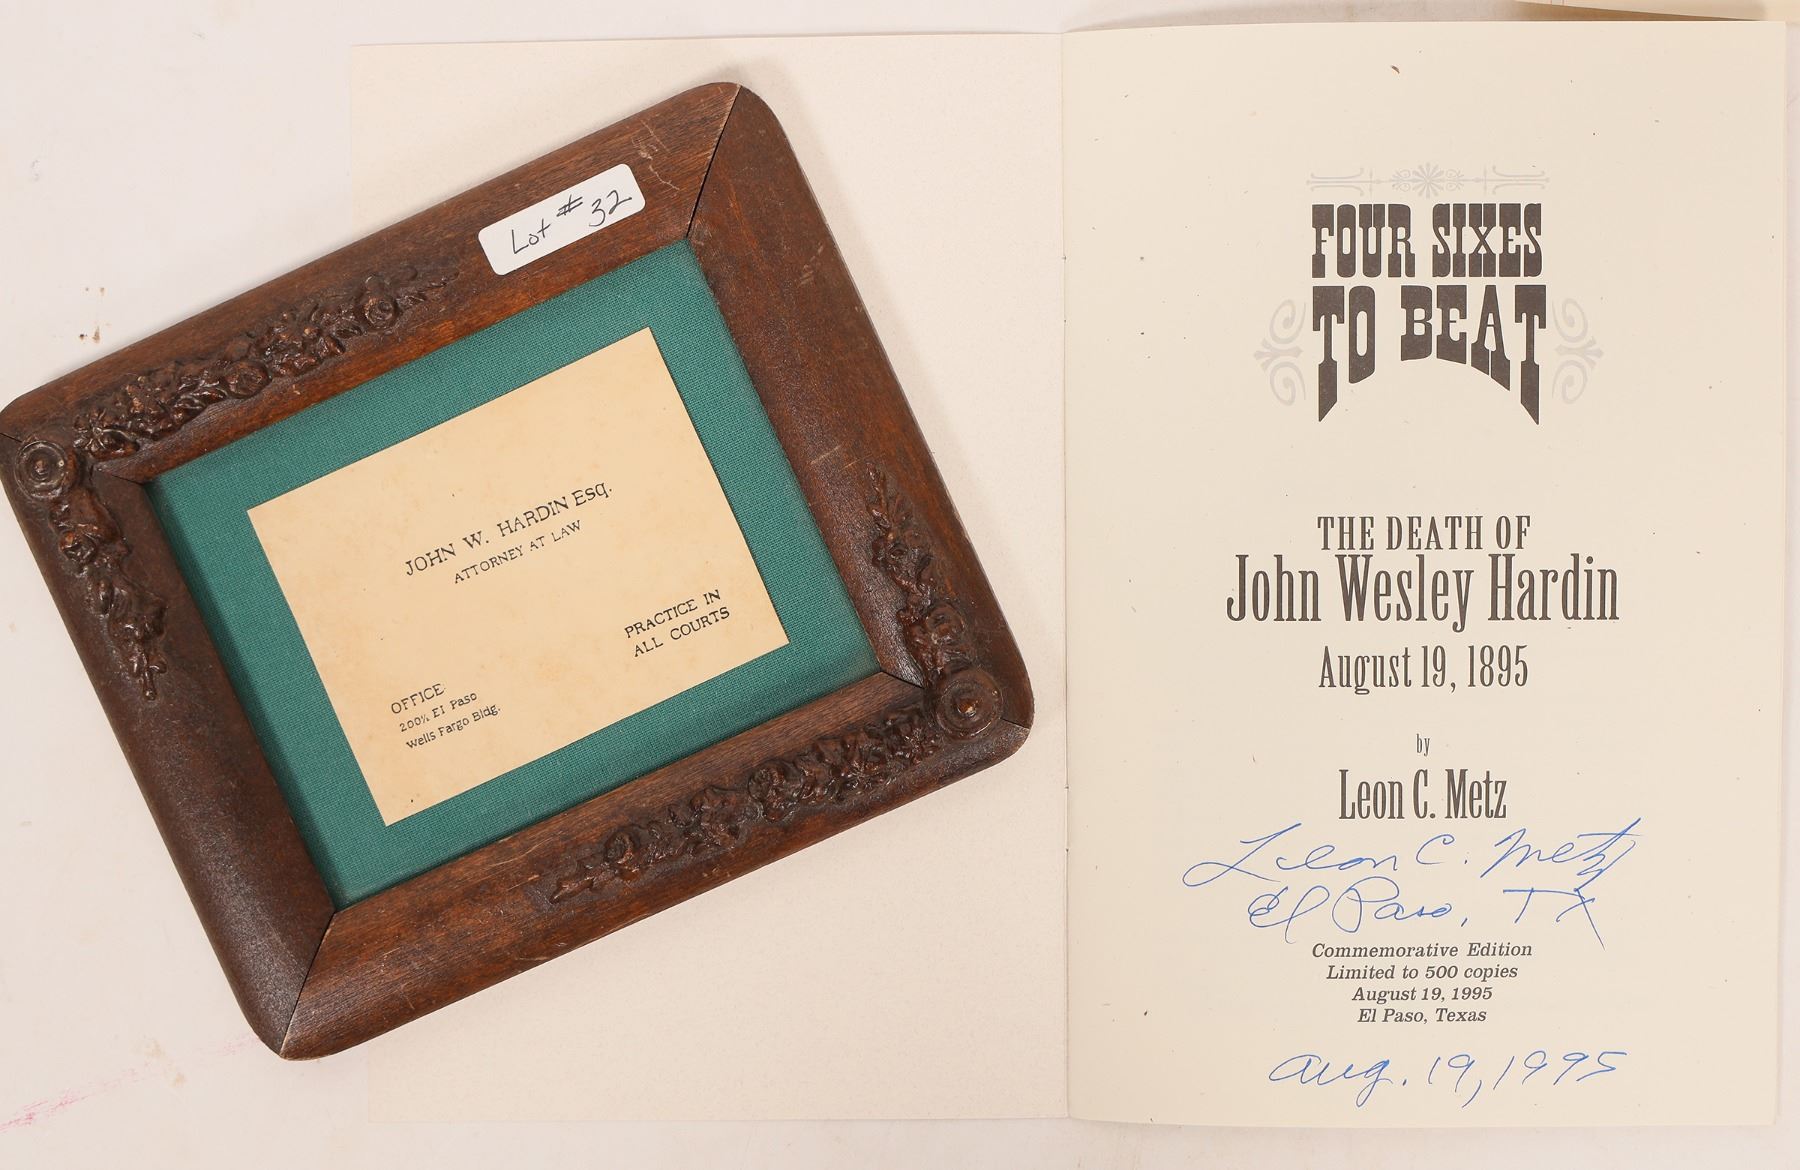 Lot # 32
JOHN W. HARDIN Esq.
ATTORNEY AT LAW
PRACTICE IN
ALL COURTS
OFFICE:
200½ El Paso
Wells Fargo Bldg.
FOUR SIXES
TO BEAT
THE DEATH OF
John Wesley Hardin
August 19, 1895
by
Leon C. Metz
Leon C. Metz
El Paso, TX
Commemorative Edition
Limited to 500 copies
August 19, 1995
El Paso, Texas
Aug. 19, 1995